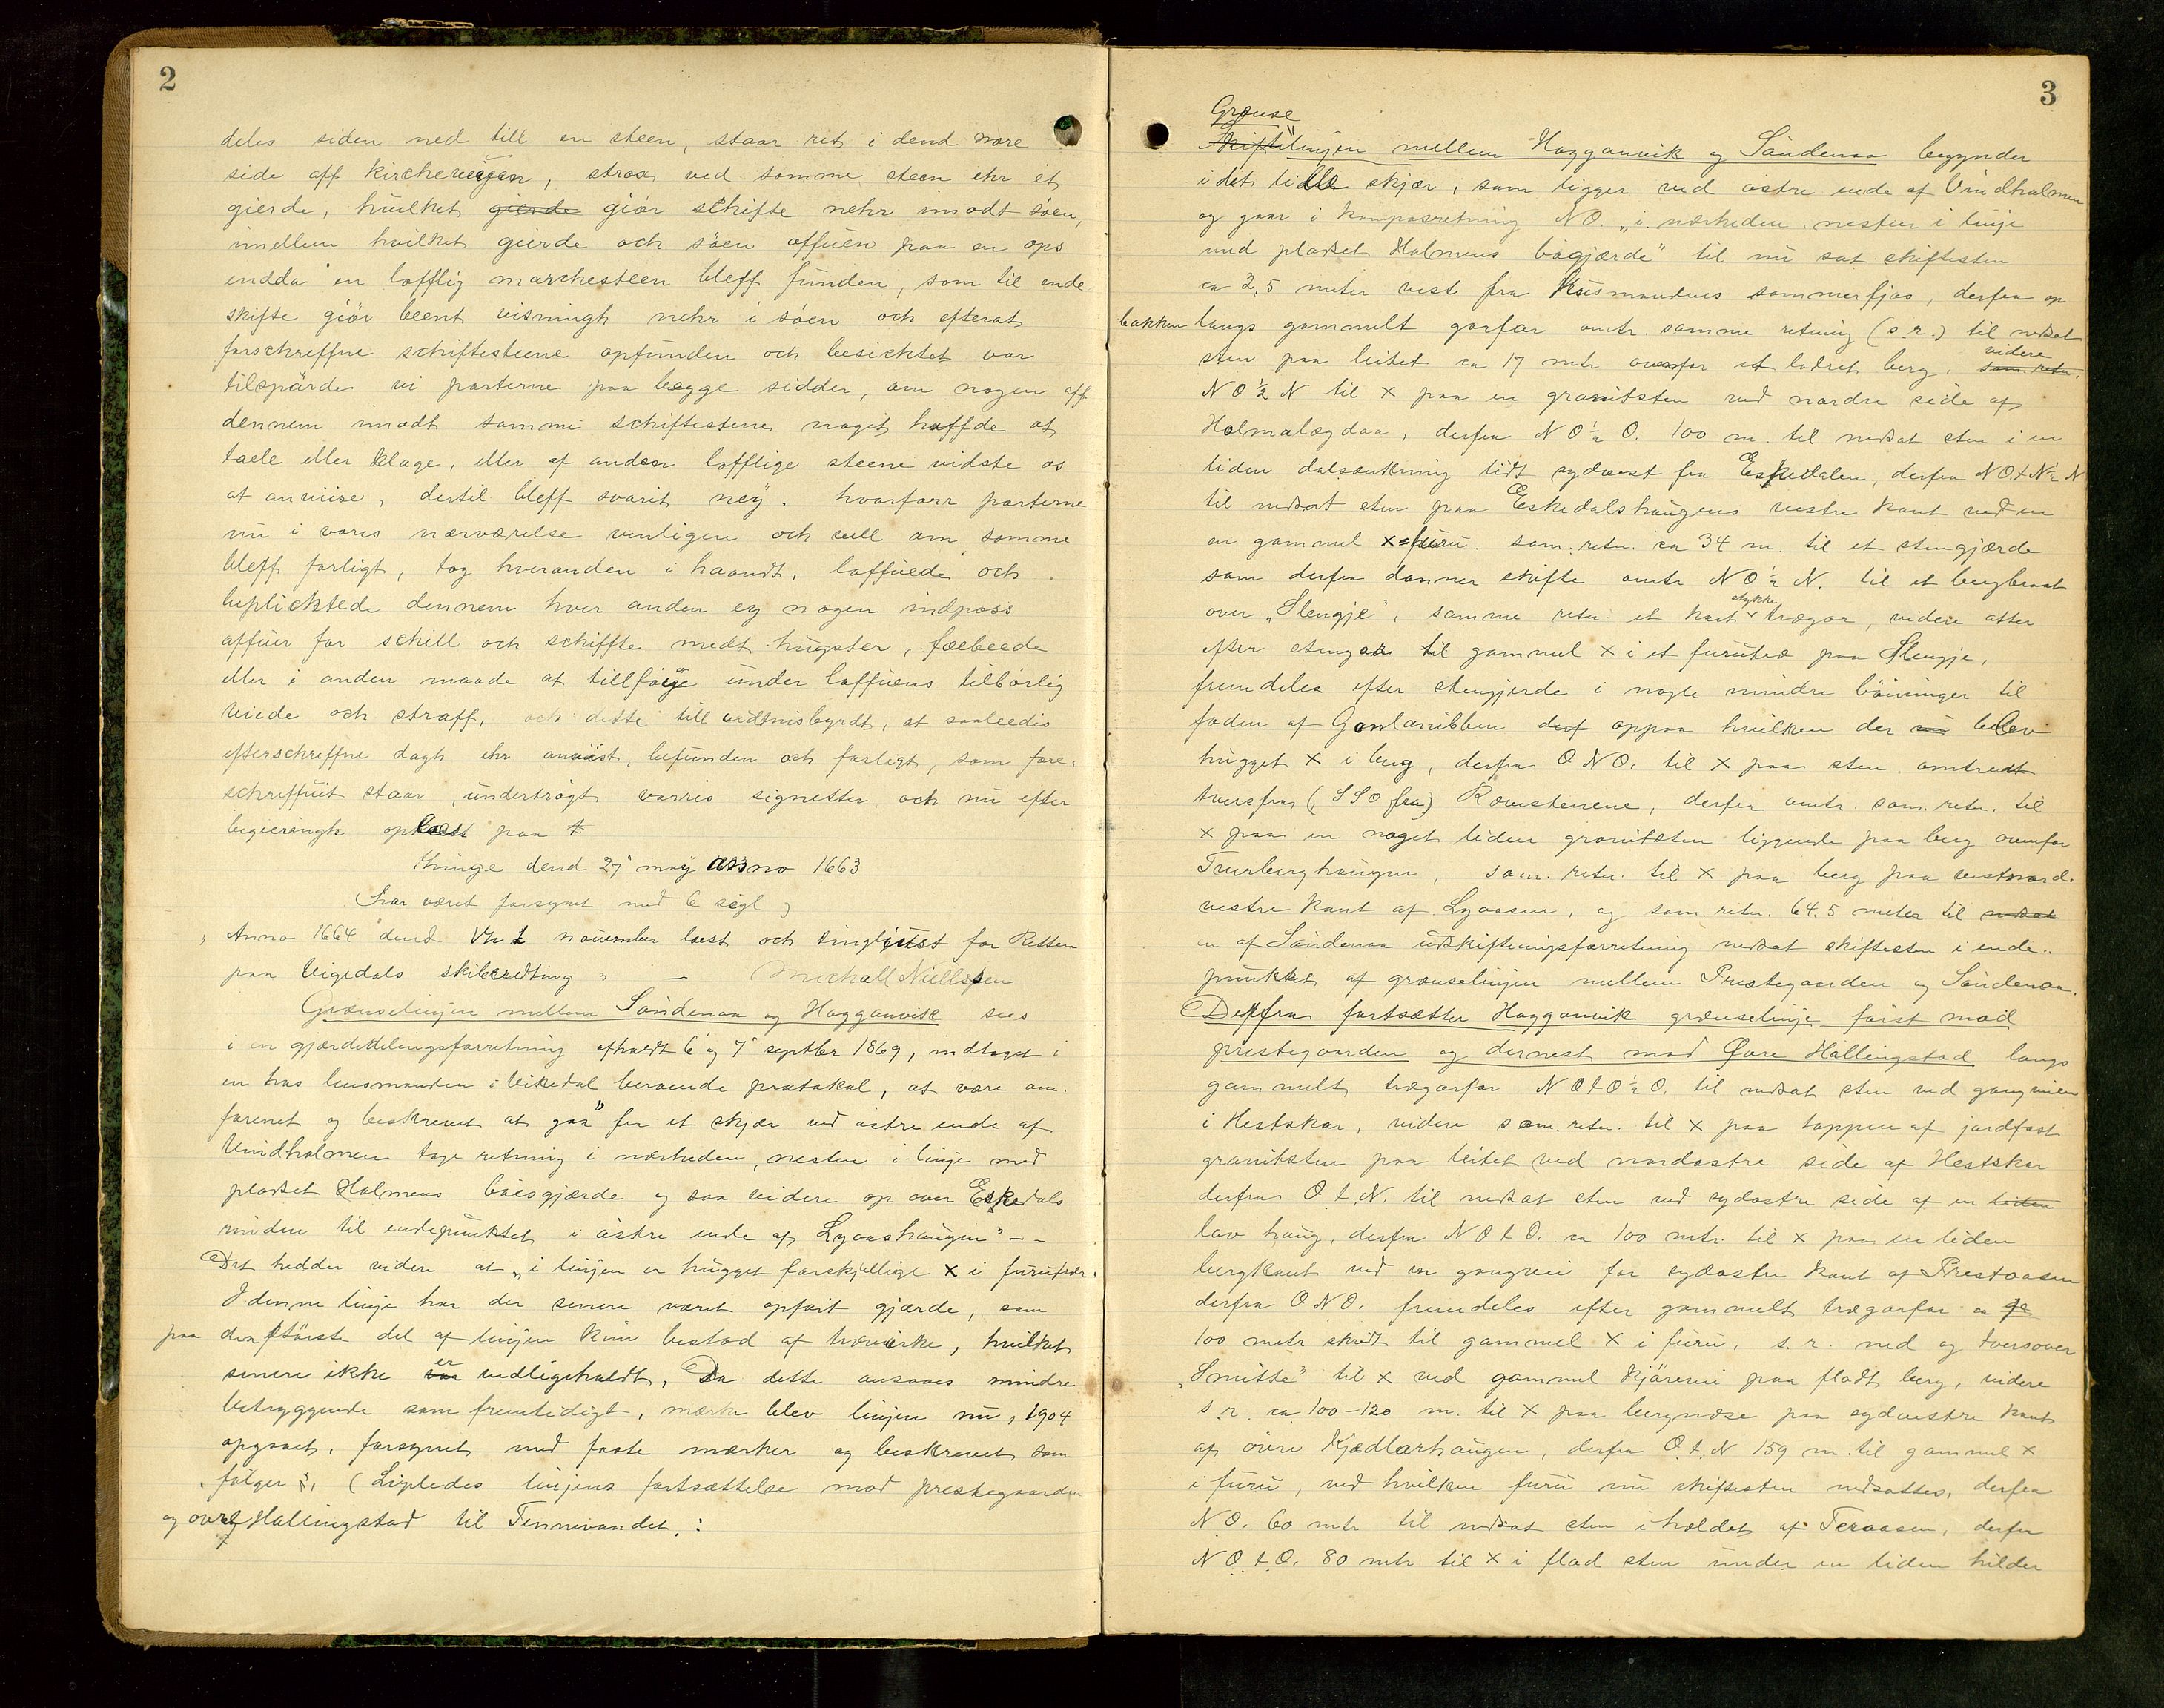 2
deles siden ned till en steen, staar ret i dend nore
side aff kircheveigen, strax ved samme steen ehr et
gierde, huilket gierde giør schifte nehr imodt søen,
imellem huilket gierde och søen offuen paa en ops
endda en lofflig marchesteen bleff funden, som til ende
skifte giör beent visningh nehr i søen och efterat
forschreffne schiftesteene opfunden och besichtet var
tilspürde vi parterne paa begge sidder, om nogen aff
dennem imodt samme schiftestene noget haffde at
taele eller klage, eller af anden lofflige steene vidste os
at anviise, dertil bleff svarit neÿ. hvorforr parterne
nu i voris nærværelse venligen och vell om samme
bleff forligt, tog hverandre i haandt, loffuede och
beplicktede dennem hver anden ey nogen indpass
affuer for schill och schiffte medt hugster, fæbeede
eller i anden maade at tillføije under laffuens tilbørlig
viede och straff, och dette till vidtnisbyrdt, at saaleedis
efterschreffne dagh ehr anviist, befunden och forligt, som fore-
schreffuit staar, undertrøgt vorris signetter, och nu efter
begieringh oplæst paa t
Thinge dend 27 maÿ anno 1663
(har været forsynet med 6 segl)
„Anno 1664 dend VII november læst och tingliust for Retten
paa Vigedals skiberedting" — Michall Niellssen
Grænselinjen mellem Søndenaa og Hogganvik sees
i en gjærdedelingsforretning afholdt 6 og 7 septbr 1869, indtaget i
en hos lensmanden i Vikedal beroende protokol, at være om-
forenet og beskrevet at gaa „fra et skjær ved østre ende af
Vindholmen tage retning i nærheden, nesten i linje med
pladset Holmens bøisgjærde og saa videre op over Eskedals
rinden til endepunktet i østre ende af Lyoashaugen" — —
Det hedder videre at „i linjen er hugget forskjellige X i furutrær.
I denne linje har der senere været opført gjærde, som
paa den største del af linjen kun bestod af trævirke, hvilket
senere ikke var er vedligeholdt. Da dette ansaaes mindre
betryggende som fremtidigt mærke blev linjen nu, 1904
opgaaet, forsynet med faste mærker og beskrevet som
følger: (Ligeledes linjens fortsættelse mod prestegaarden
og øvre Hallingstad til Tennevandet.:
3
Grænse
Skiftelinjen mellem Hogganvik og Søndenaa begynder
i det lille skjær, som ligger ved østre ende af Vindholmen
og gaar i kompasretning NO. „i nærheden nesten i linje
med pladset Holmens bøgjærde" til nu sat skiftesten
ca 2,5 meter vest fra Husmandens sommerfjøs, derfra op
bakken langs gammelt garfar omtr. samme retning (s.r.) til nedsat
sten paa leitet ca 17 mtr ovenfor et lodret berg. som. retn. videre
NO ½ N til X paa en granitsten ved nordre side af
Holmalægdaa, derfra NO ½ O. 100 m. til nedsat sten i en
liden dalsænkning lidt sydvest fra Eskedalen, derfra NO.t.N ½ N
til nedsat sten paa Eskedalshaugens vestre kant ved en
en gammel X-furu. sam. retn. ca 34 m. til et stengjærde
som derfra danner skifte omtr NO ½ N. til et bergbrot
over „Slengje", samme retn. et kort stykke trægar, videre atter
efter stengar til gammel X i et furutræ paa Slengje,
fremdeles efter stengjerde i nogle mindre bøininger til
foden af Gonlanibben derf oppaa hvilken der nu blev
hugget X i berg, derfra ONO. til X paa sten omtrent
tversfra (SSO fra) Rævstenene, derfra omtr. sam. retn. til
X paa en noget liden granitsten liggende paa berg ovenfor
Tverberghaugen, sam. retn. til X paa berg paa vestnord-
vestre kant af Lyoasen, og sam. retn. 64.5 meter til nedsat
en af Søndenaa udskiftningsforretning nedsat skiftesten i ende-
punktet af grænselinjen mellem Prestegaarden og Søndenaa.
Derfra fortsætter Hogganvik grænselinje først mod
prestegaarden og dernest mod Øvre Hallingstad langs
gammelt trægarfar NOtO ½ O. til nedsat sten ved gangveien
i Hestskar, videre sam. retn. til X paa toppen af jordfast
granitsten paa leitet ved nordøstre side af Hestskar
derfra O.t.N. til nedsat sten ved sydøstre side af en liden
lav haug, derfra NOtO. ca 100 mtr. til X paa en liden
bergkant ved en gangvei for sydøstre kant af Prestaasen
derfra ONO. fremdeles efter gammelt trægarfar ca
100 mtr skridt til gammel X i furu, s.r. ned og tversover
„Smitte" til X ved gammel kjørevei paa fladt berg, videre
s.r. ca 100-120 m. til X paa bergnæse paa sydvestre kant
af øvre Kjedlarhaugen, derfra O.t.N 159 m. til gammel X
i furu, ved hvilken furu nu skiftesten nedsattes, derfra
NO. 60 mtr til nedsat sten i holdet af Teraasen, derfra
NO.t.O. 80 mtr til X i flad sten under en liden hilder